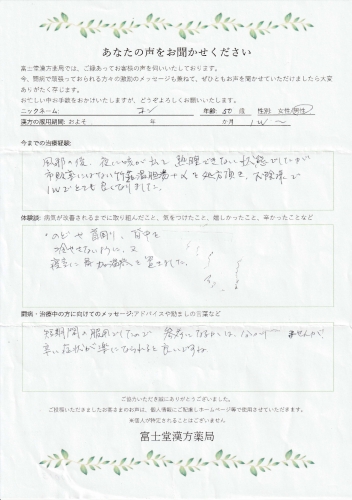 あなたの声をお聞かせください
富士堂漢方薬局では、ご縁あってお客様の声を伺いいたしております。
今、闘病で頑張っておられる方々の激励のメッセージも兼ねて、ぜひともお声を聞かせていただけましたら大変
ありがたく存じます。
お忙しい中お手数をおかけいたしますが、どうぞよろしくお願いいたします。
ニックネーム: 年齢: 50 歳 性別 女性/男性
漢方の服用期間: およそ 年 か月 1W〜
今までの治療経験:
風邪の後、夜に咳が出て、熟睡できない状態でしたが
市販薬にはない竹茹温胆湯+αを処方頂き、大体
1Wでとても良くなりました。
体験談: 病気が改善されるまでに取り組んだこと、気をつけたこと、嬉しかったこと、辛かったことなど
・のどや首周り、背中を
冷やさないように、又
寝室に 加湿 を置きました。
闘病・治療中の方に向けてのメッセージ:アドバイスや励ましの言葉など
短期間の服用でしたので 参考になるかは ませんが
辛い症状が楽になられると良いですね
ご協力いただき誠にありがとうございました。
ご投稿いただきましたお客さまのお声は、個人情報にご配慮しホームページ等で使用させていただきます。
※個人が特定されることはございません
富士堂漢方薬局